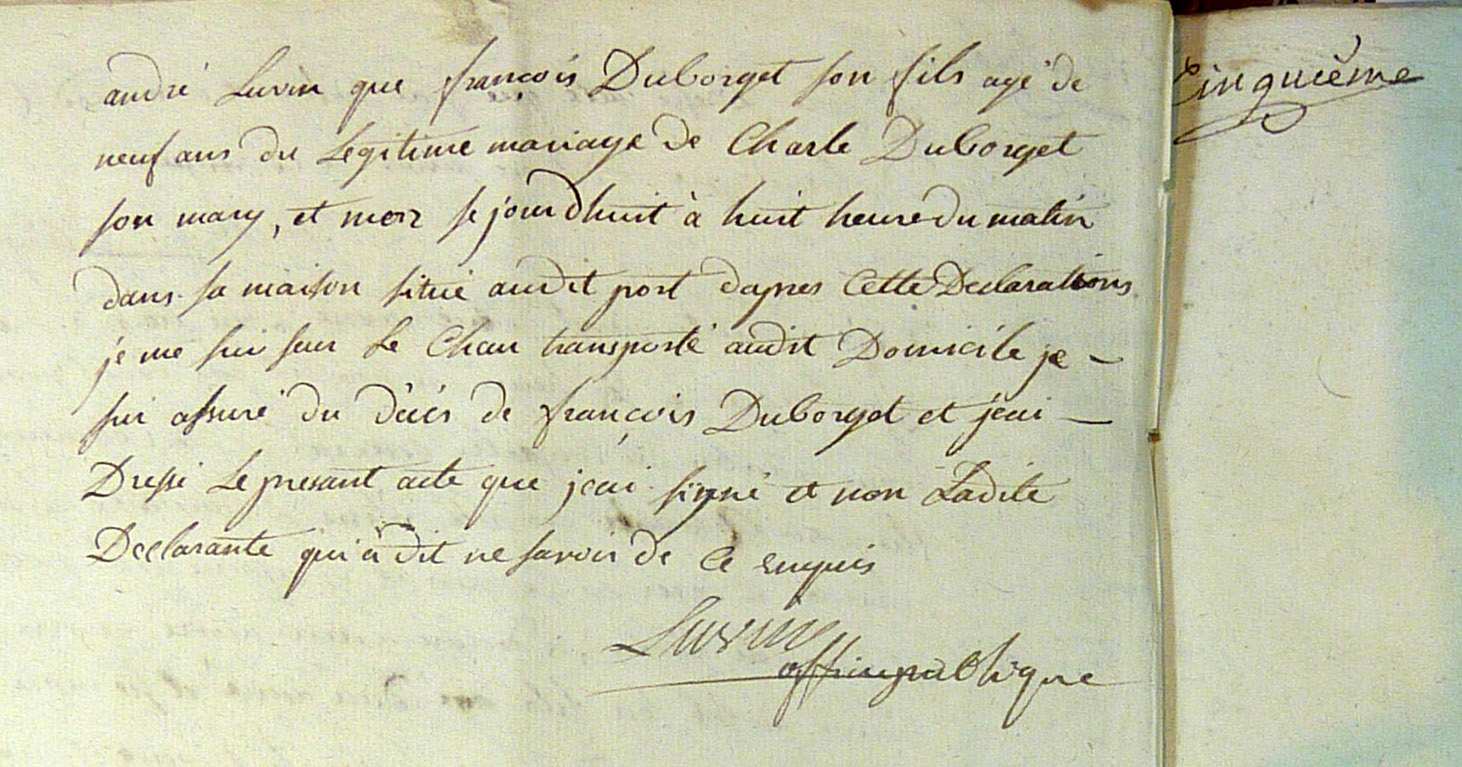 andré Luvin que françois Duborget son fils agé de
neuf ans du Légitime mariage de Charle Duborget
son mary, et mor se jourdhuit à huit heure du matin
dans sa maison situé audit port dapres Cette Declarations
je me sui sur Le Chan transporté audit Domicile je -
sui assuré du décés de françois Duborget et jeai -
Dressé Le presant acte que jeai signé et non Ladite
Declarante qui à dit ne savoir de Ce enquis
Luvin
offic publique
Cinquième